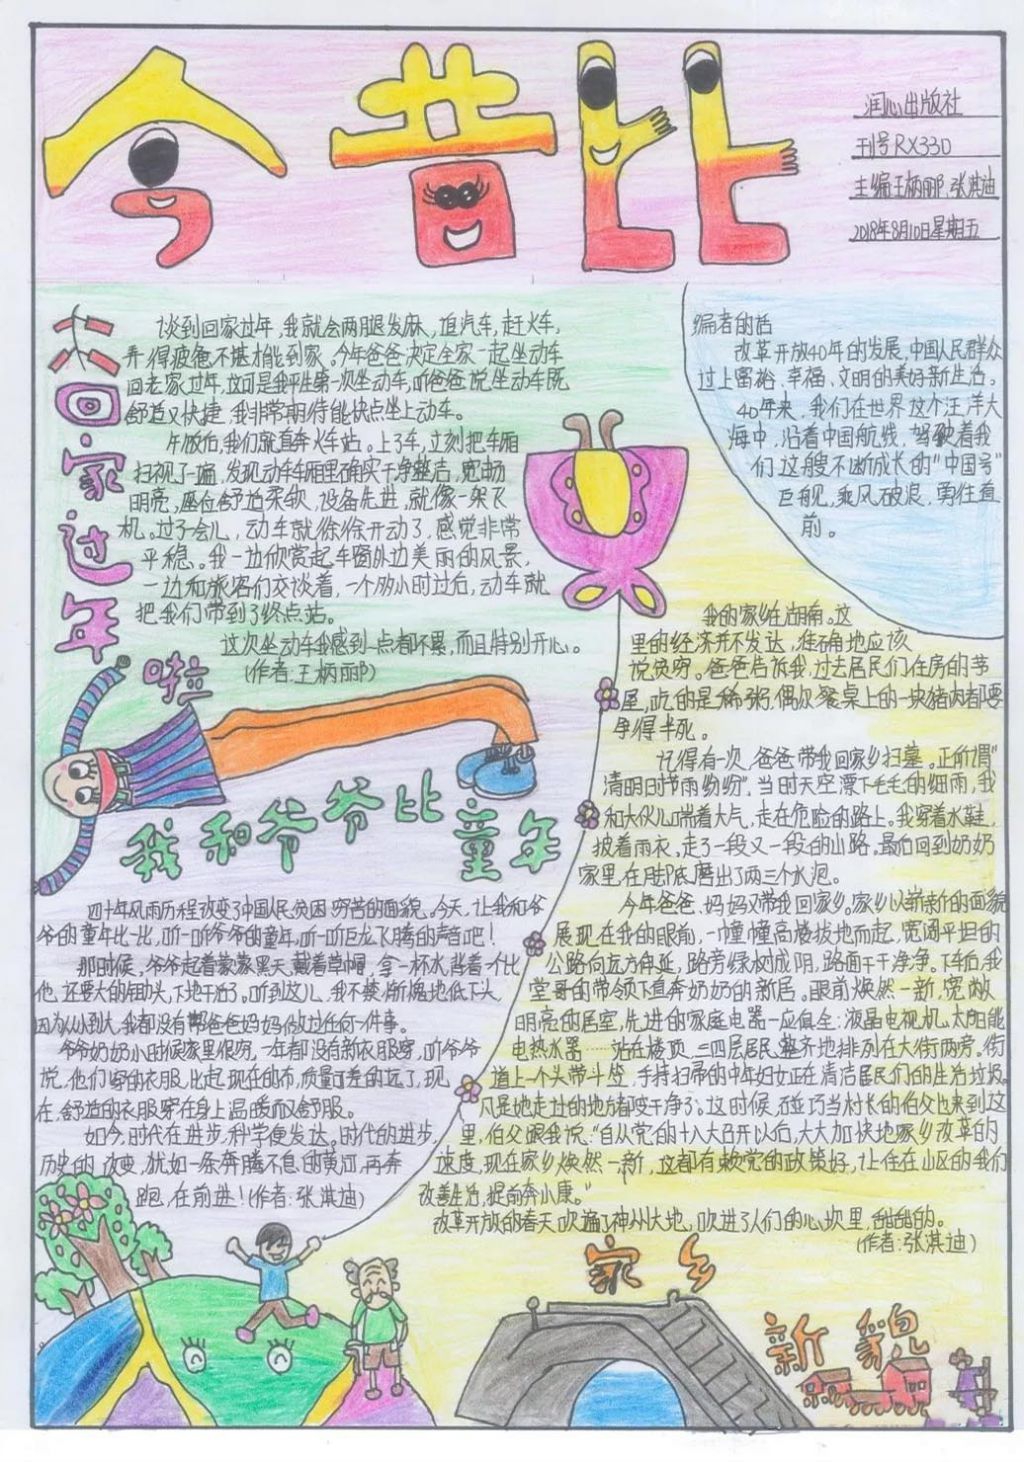 今昔比
润心出版社
刊号RX330
主编王柄郦、张淇迪
2018年8月10日星期五
编者的话
改革开放40年的发展,中国人民群众
过上富裕、幸福、文明的美好新生活。
40年来,我们在世界这个汪洋大
海中,沿着中国航线,驾驶着我
们这艘不断成长的“中国号”
巨舰,乘风破浪,勇往直
前。
回家过年啦
谈到回家过年,我就会两腿发麻,追汽车,赶火车,
弄得疲惫不堪才能到家。今年爸爸决定全家一起坐动车
回老家过年,这可是我平生第一次坐动车,听爸爸说坐动车既
舒适又快捷,我非常期待能快点坐上动车。
午饭后,我们就直奔火车站。上了车,立刻把车厢
扫视了一遍,发现动车车厢里确实干净整洁,宽敞
明亮,座位舒适柔软,设备先进,就像一架飞
机。过了会儿,动车就徐徐开动了,感觉非常
平稳。我一边欣赏起车窗外边美丽的风景,
一边和旅客们交谈着,一个多小时过后,动车就
把我们带到了终点站。
这次坐动车我感到一点都不累,而且特别开心。
(作者:王柄郦)
我和爷爷比童年
四十年风雨历程改变了中国人民贫困穷苦的面貌。今天,让我和爷
爷的童年比一比,听一听爷爷的童年,听一听巨龙飞腾的声音吧!
那时候,爷爷起着蒙蒙黑天,戴着草帽,拿一杯水,背着一个比
他还要大的锄头,下地干活了。听到这儿,我不禁惭愧地低下头,
因为从小到大,我都没有帮爸爸妈妈做过任何一件事。
爷爷奶奶小时候家里很穷,一年都没有新衣服穿,听爷爷
说,他们穿的衣服,比起现在的布,质量可差的远了,现
在,舒适的衣服穿在身上温暖而又舒服。
如今,时代在进步,科学便发达。时代的进步,
历史的改变,犹如一条奔腾不息的黄河,再奔
跑,在前进!(作者:张淇迪)
我的家乡在湖南。这
里的经济并不发达,准确地应该
说贫穷。爸爸告诉我,过去居民们住房的茅
屋,吃的是稀粥,偶尔餐桌上的一块猪肉都要
争得半死。
记得有一次,爸爸带我回家乡扫墓。正所谓“
清明日节雨纷纷”,当时天空漂下毛毛的细雨,我
和大伙儿喘着大气,走在危险的路上。我穿着水鞋,
披着雨衣,走了一段又一段的山路。最后回到奶奶
家里,在脚底磨出了两三个水泡。
今年爸爸、妈妈又带我回家乡。家乡以崭新的面貌
展现在我的眼前,一幢幢高楼拔地而起,宽阔平坦的
公路向远方伸延,路旁绿树成阴,路面干干净净。下车后,我
堂哥的带领下直奔奶奶的新居。眼前焕然一新,宽敞
明亮的居室,先进的家庭电器一应俱全:液晶电视机、太阳能
电热水器……站在楼顶,三四层居民整齐地排列在大街两旁。街
道上一个头带斗笠,手持扫帚的中年妇女正在清洁居民们的生活垃圾,
凡是她走过的地方都变干净了。这时候,碰巧当村长的伯父也来到这
里,伯父跟我说:“自从党的十八大召开以后,大大加快地家乡改革的
速度,现在家乡焕然一新,这都有赖党的政策好,让住在山区的我们
改善生活,提前奔小康。”
改革开放的春天吹遍了神州大地,吹进了人们的心坎里,甜甜的。
(作者:张淇迪)
家乡
新貌